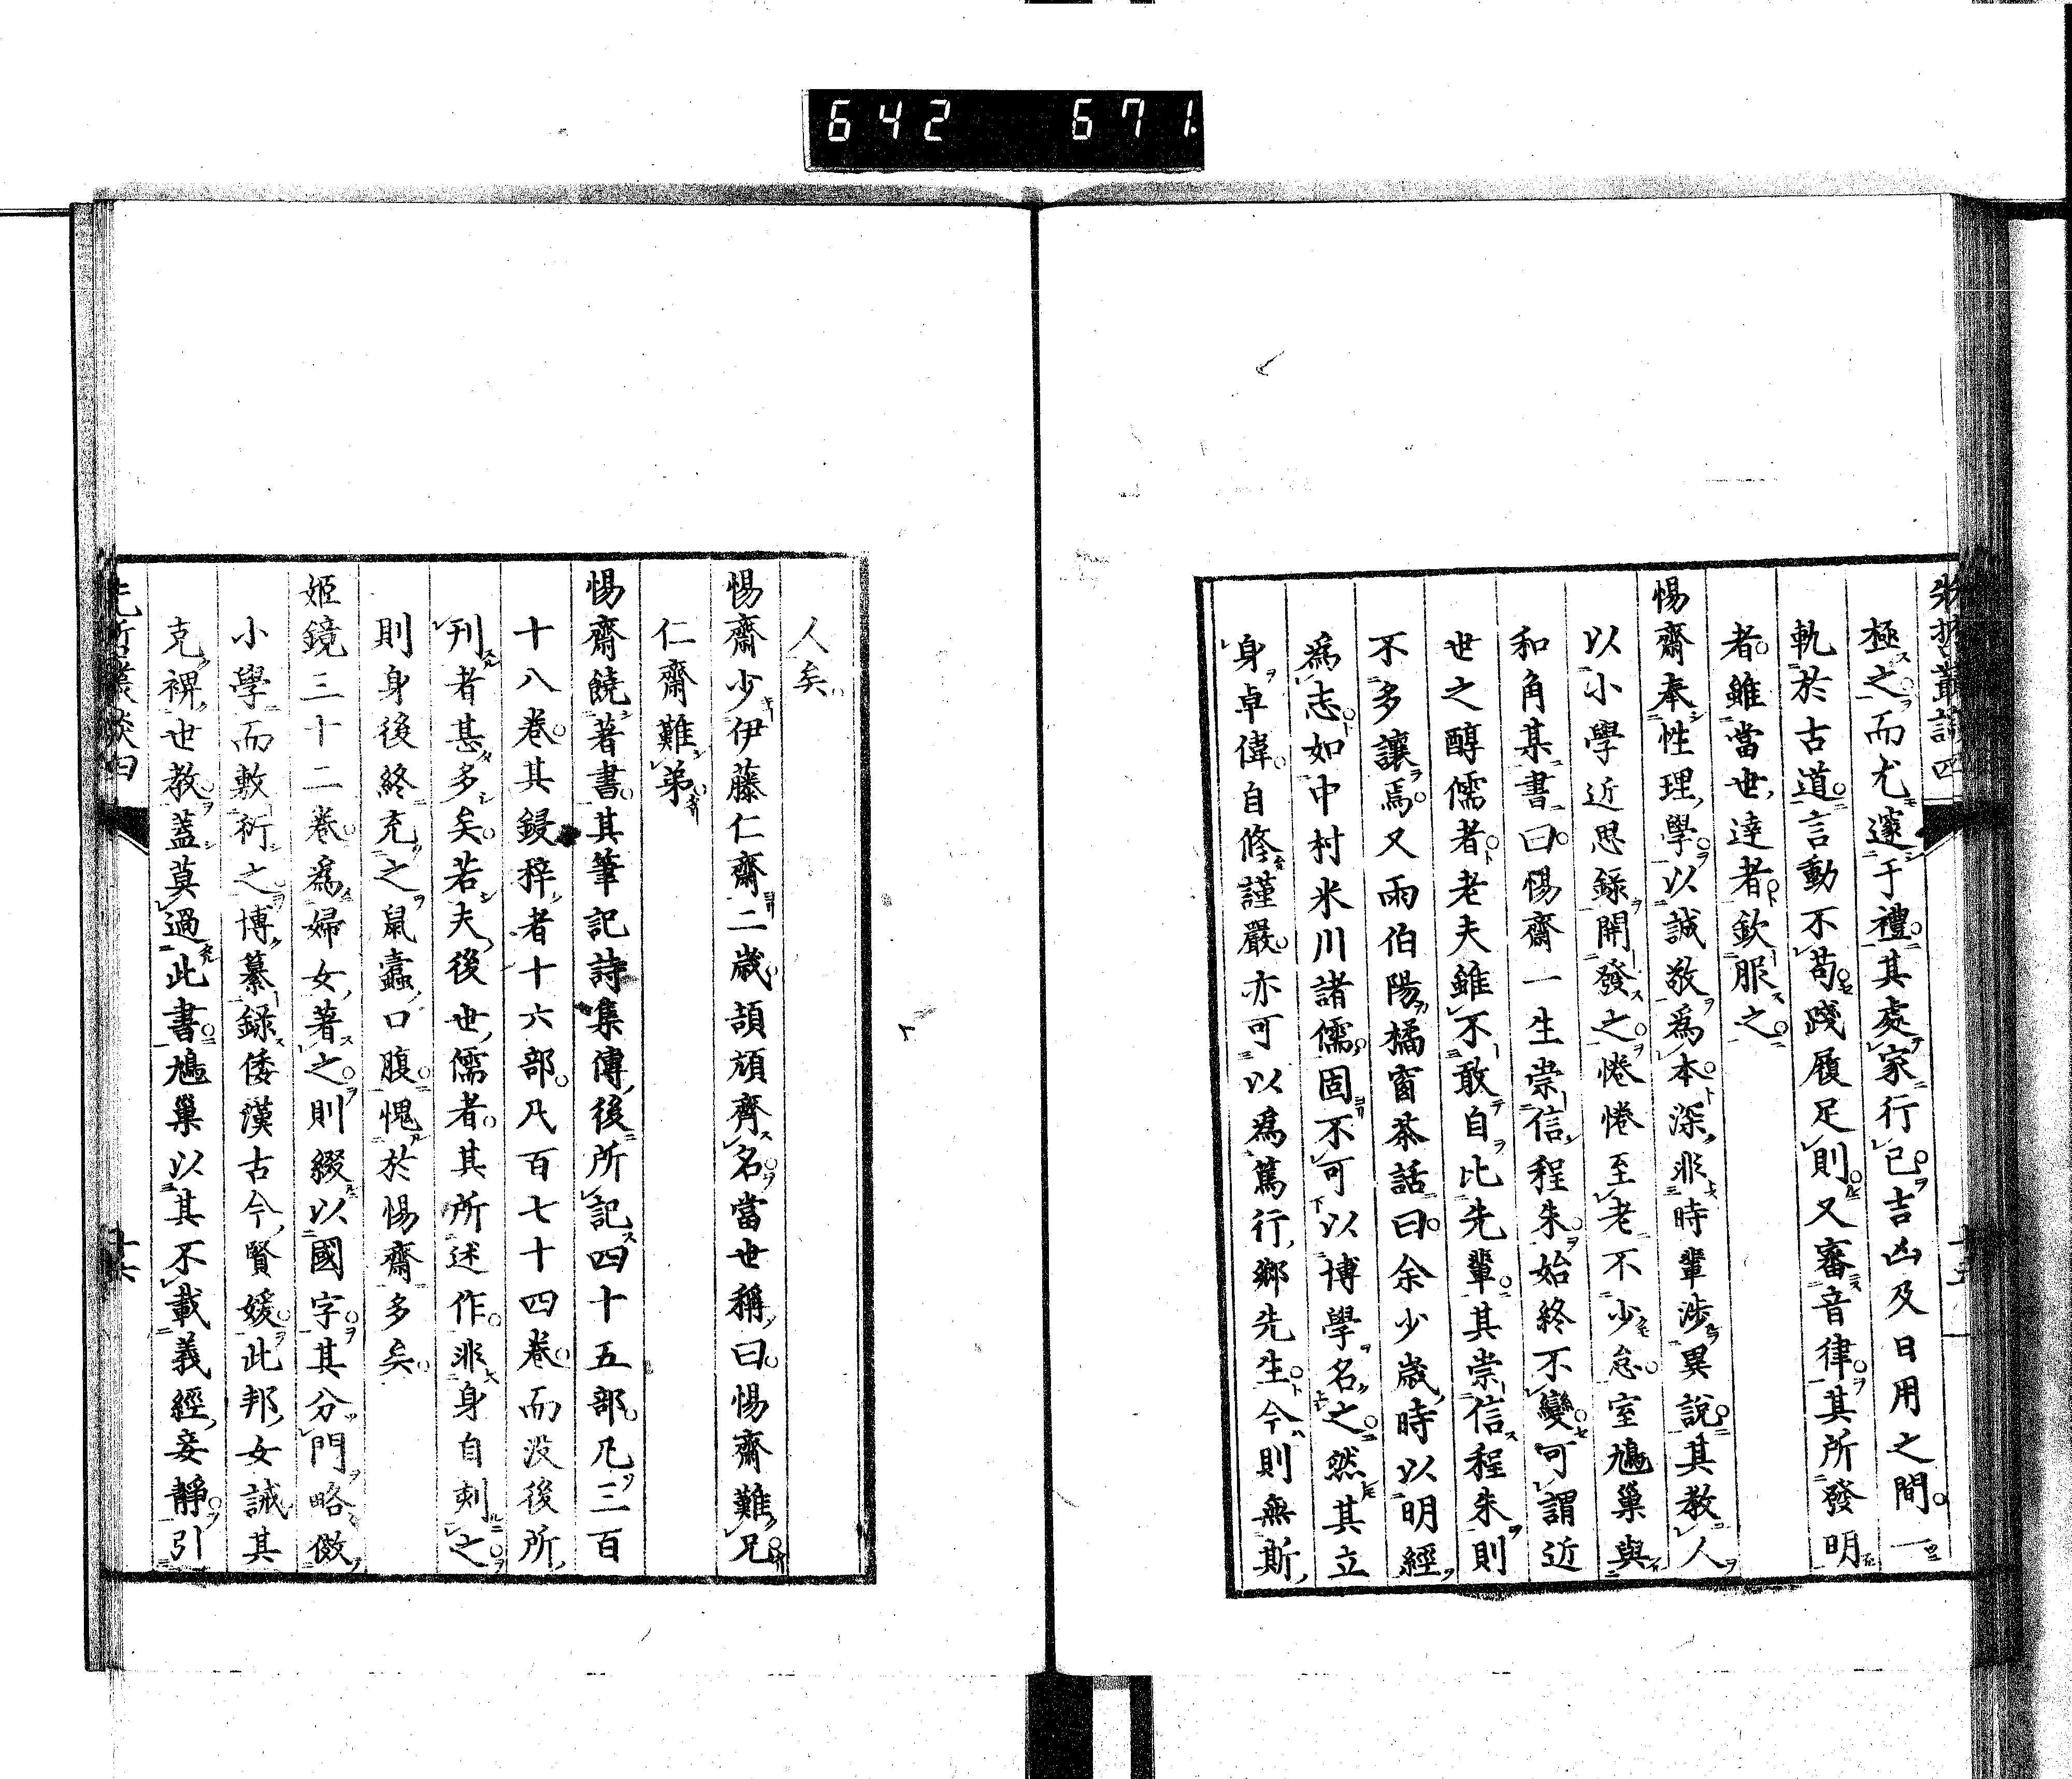 642 671
極之而尤邃于禮其處家行己吉凶及日用之間一
軌於古道言動不苟踐履足則又審音律其所發明
者雖當世達者欽服之
惕齋奉性理學以誠敬爲本深非時輩涉異說其教人
以小學近思錄開發之惓惓至老不少怠室鳩巢與
和角某書曰惕齋一生崇信程朱始終不變可謂近
世之醇儒者老夫雖不敢自比先輩其崇信程朱則
不多讓焉又雨伯陽橘窗茶話曰余少歲時以明經
爲志如中村米川諸儒固不可以博學名之然其立
身卓偉自修謹嚴亦可以爲篤行鄉先生今則無斯
人矣
惕齋少伊藤仁齋二歲頡頏齊名當世稱曰惕齋難兄
仁齋難弟
惕齋饒著書其筆記詩集傳後所記四十五部凡三百
十八卷其鋟梓者十六部凡百七十四卷而沒後所
刊者甚多矣若夫後世儒者其所述作非身自刻之
則身後終充之鼠蠹口腹愧於惕齋多矣
姬鏡三十二卷爲婦女著之則綴以國字其分門略倣
小學而敷衍之博纂錄倭漢古今賢媛此邦女誡其
克裨世教蓋莫過此書鳩巢以其不載義經妾靜引
先哲叢談四
十六